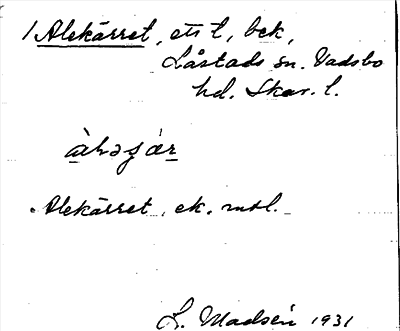 1 Alekärret, ett t, bek,
Låstads sn. Vadsbo
hd. Skar. l.
Alekärret, ek.
L. Madsén 1931